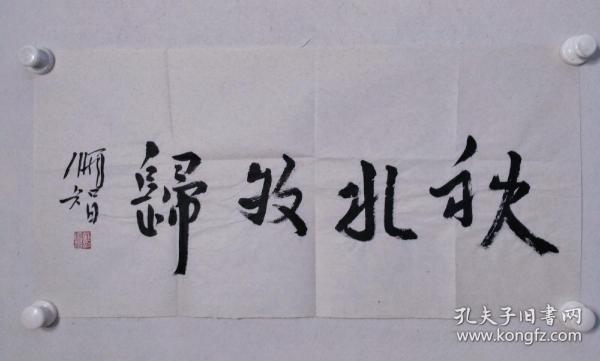 秋 牧歸
智
孔夫子旧书网
www.kongfz.com